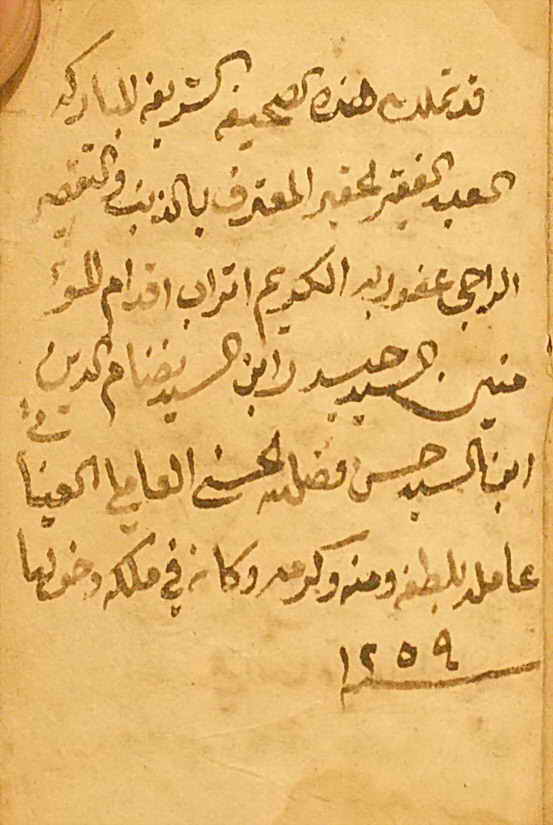 قد تملك هذه الصحيفه الشريفه المباركه
العبد الفقير الحقير المعترف بالذنب والتقصير
الراجي عفو ربه الكريم اتراب اقدام المؤ
منين السيد حيدر ابن السيد نضام الدين
ابن السيد حسن فضل الله الحسني العاملي العيناثي
عامله بلطفه ومنه وكرمه وكان في ملكه دخولها
١٢٥٩